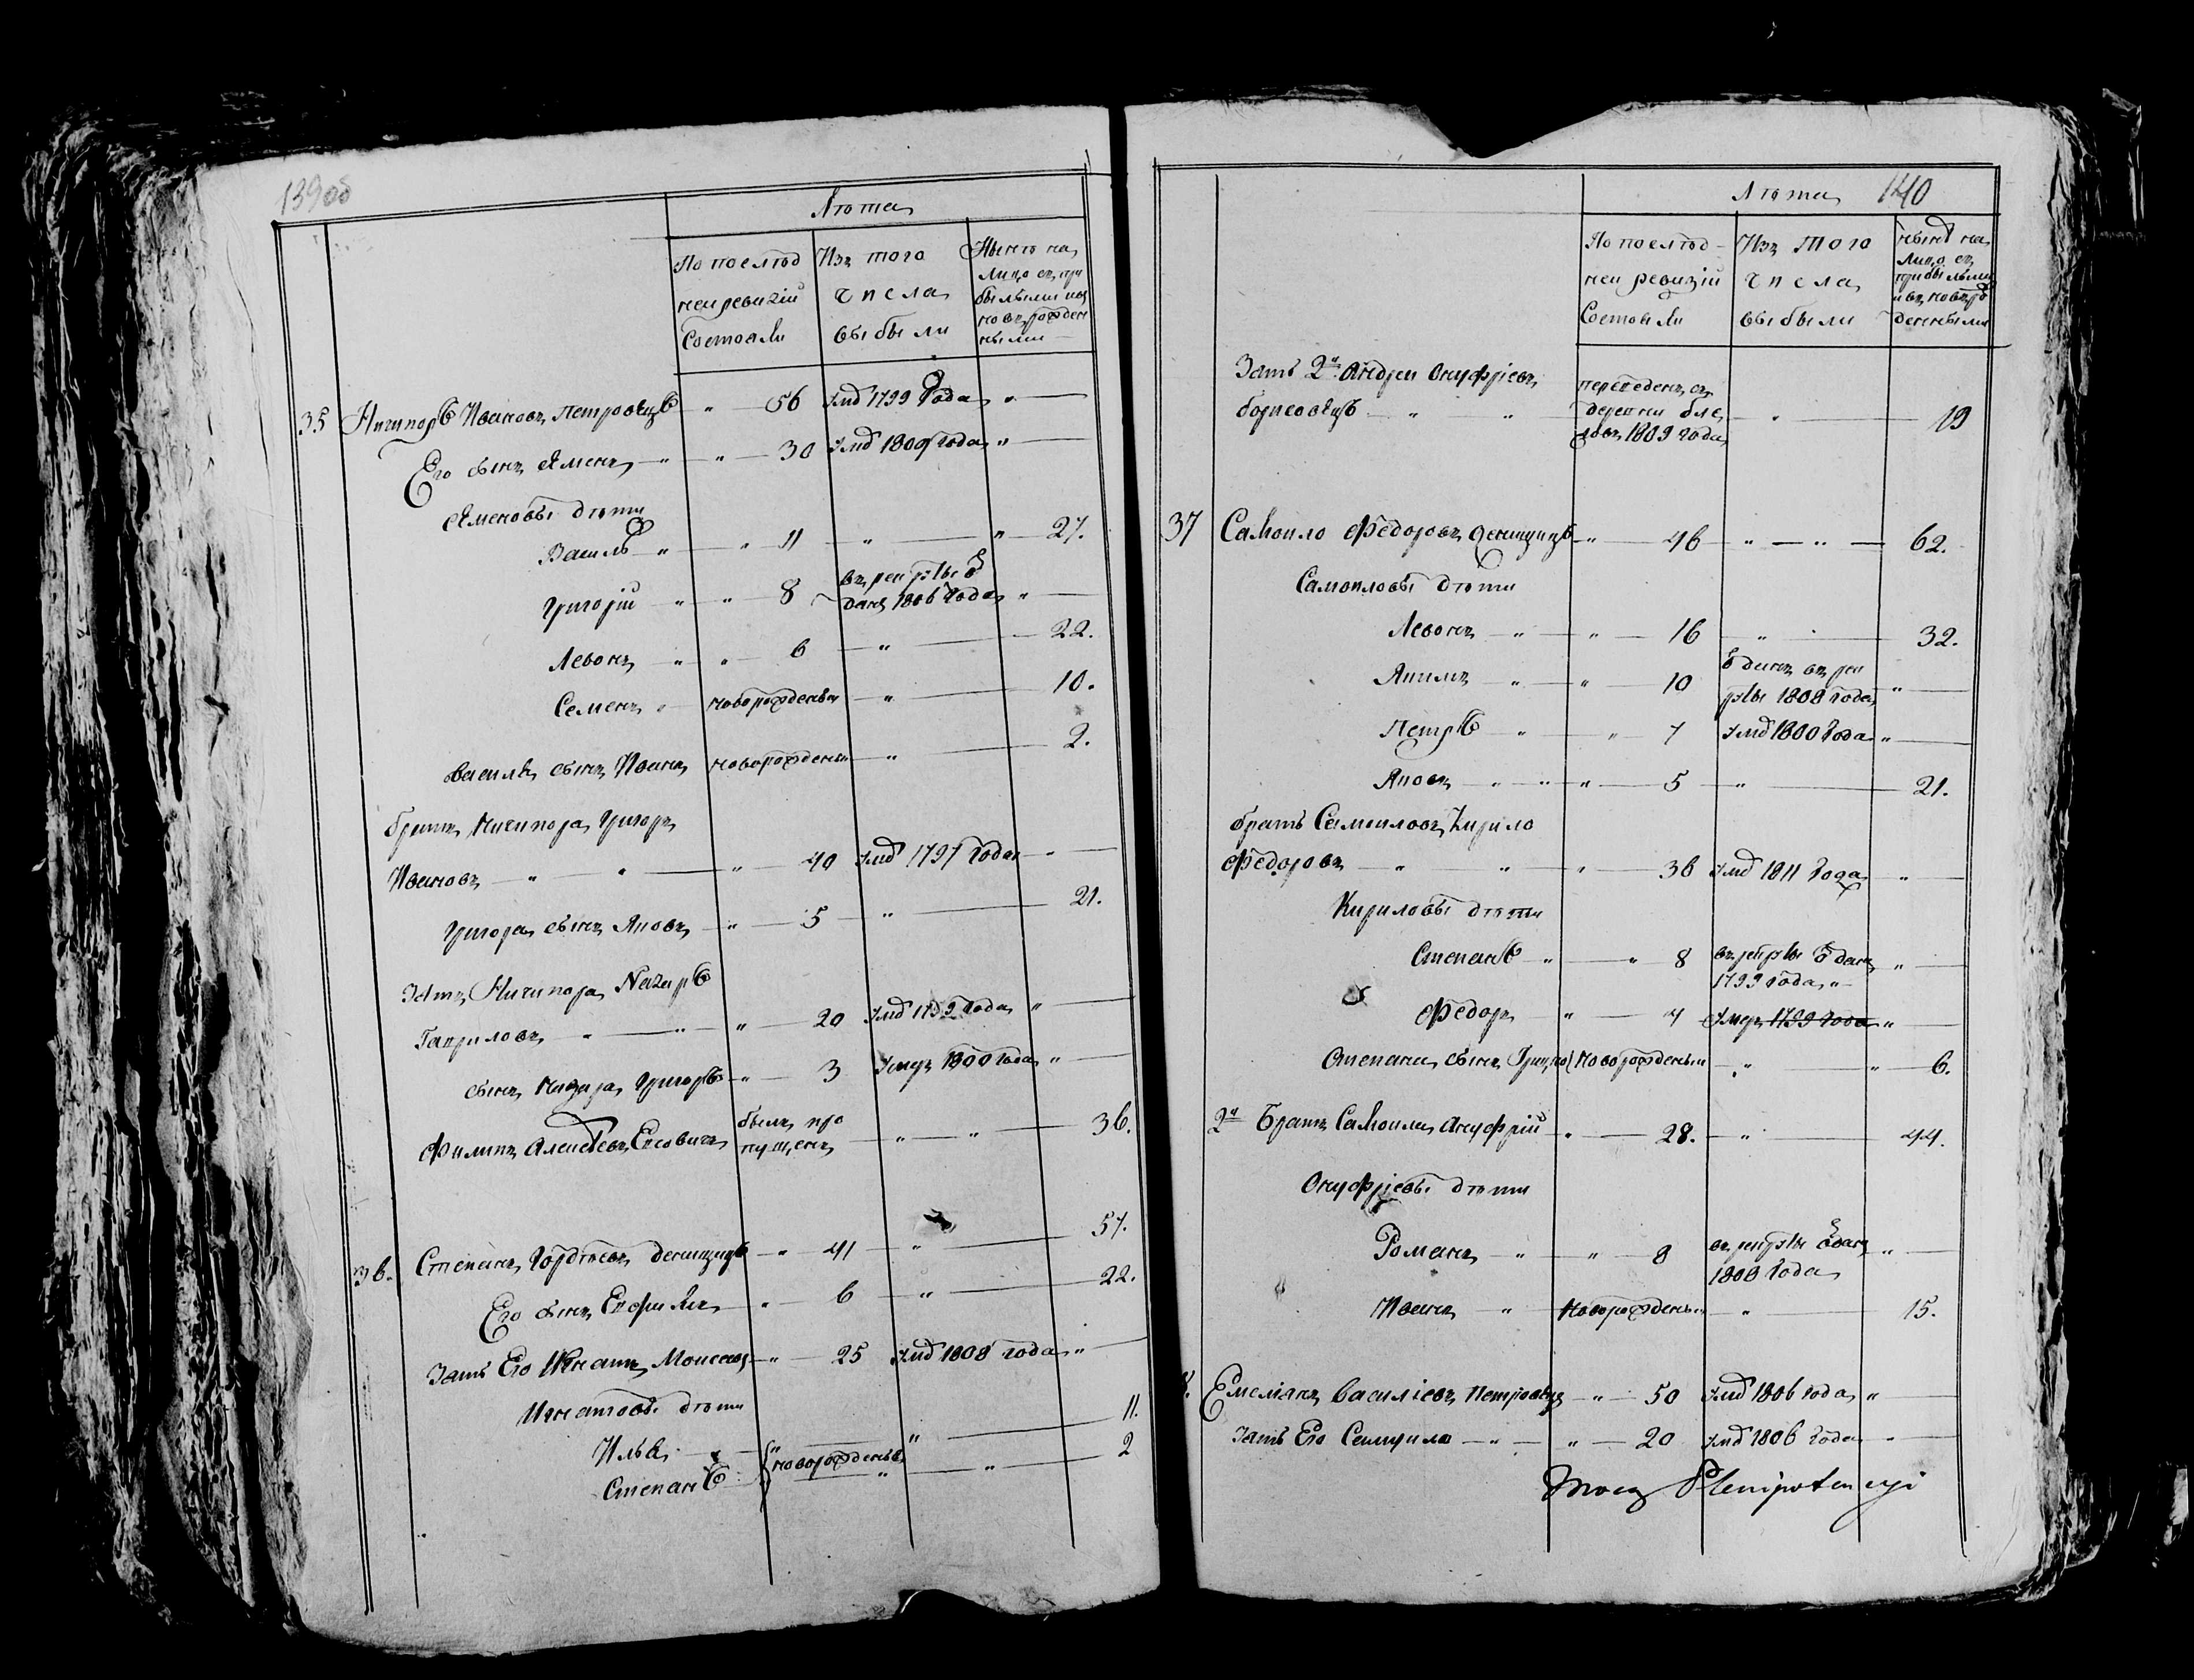 139об
Лѣта
По послѣд
ней ревизіи
Состояли
Изъ того
числа
выбыли
Нынѣ на
лицо съ при
былыми и
новорожден
ными
35 Ничипоръ Ивановъ Петровецъ " 56 умѣ 1799 года "
Его сынъ Яменъ " " 30 умѣ 1809 года "
Яменовы дѣти
Василь " " 11 " " 27.
Григорій " " 8 въ рекруты о
данъ 1806 года "
Левонъ " " 6 " 22.
Семенъ " новорожденый " 10.
Василя сынъ Иванъ новорожденый " 2.
братъ Ничипора Григоръ
Ивановъ " " " 40 умѣ 1797 года "
Григора сынъ Яковъ " 5 " 21.
Зять Ничипора Назаръ
Гавриловъ " " " 20 умѣ 1799 года "
сынъ Назара Григоръ " 3 умеръ 1800 года "
Филипъ Алексѣевъ былъ про
пущенъ " " 36.
36. Степанъ Гордѣевъ Денищицъ " 41 " 57.
Его сынъ " 6 " 22.
Зять Его Игнатъ Моисеевъ " 25 умѣ 1808 года "
Игнатовы дѣти
Илья " " 11.
новорожденые
Степанъ " " 2
140
Лѣта
По послѣд
ней ревизіи
Состояли
Изъ того
числа
выбыли
нынѣ на
лицо съ
прибылыми
и новоро
жденными
Зять 2й Андрей Онуфріевъ
Борисовецъ " " переведенъ съ
деревни
1809 года " 19
37 Самойло Федоровъ Денищицъ " 46 " " 62.
Самойловы дѣти
Левонъ " " 16 " 32.
Якимъ " " 10 оданъ въ рек
руты 1808 года "
Петръ " " 7 умѣ 1800 года "
Яковъ " " " 5 " 21.
братъ Самойловъ Кирило
Федоровъ " " " 36 умѣ 1811 года "
Кириловы дѣти
Степанъ " " 8 въ рекруты оданъ
1799 года "
Федоръ " 4 умеръ 1799 года "
Степана сынъ новорожденый " " 6.
2й Братъ Самойла Онуфрій " 28. " 44.
Онуфріевы дѣти
Романъ " " 8 въ рекруты оданъ
1808 года "
Иванъ " новорожденый " 15.
Емельянъ Василіевъ Петровецъ " 50 умѣ 1806 года "
Зять Его " " 20 умѣ 1806 года "
Mocą Plenipotencyi